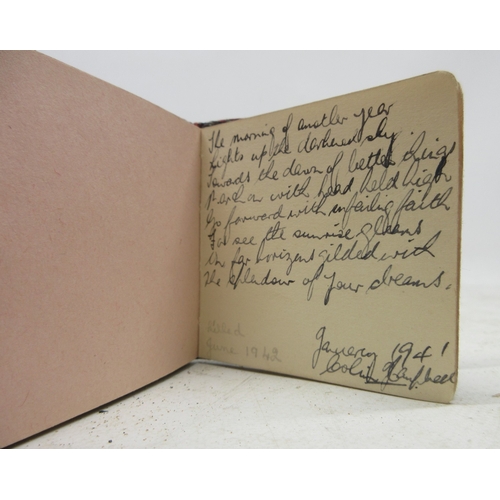 The morning of another year
Lights up the darkened sky
Towards the dawn of better things
March on with head held high
Go forward with unfailing faith
For see the sunrise gleams
On far horizons gilded with
The splendour of your dreams.
January 1941
Colin
Killed
June 1942